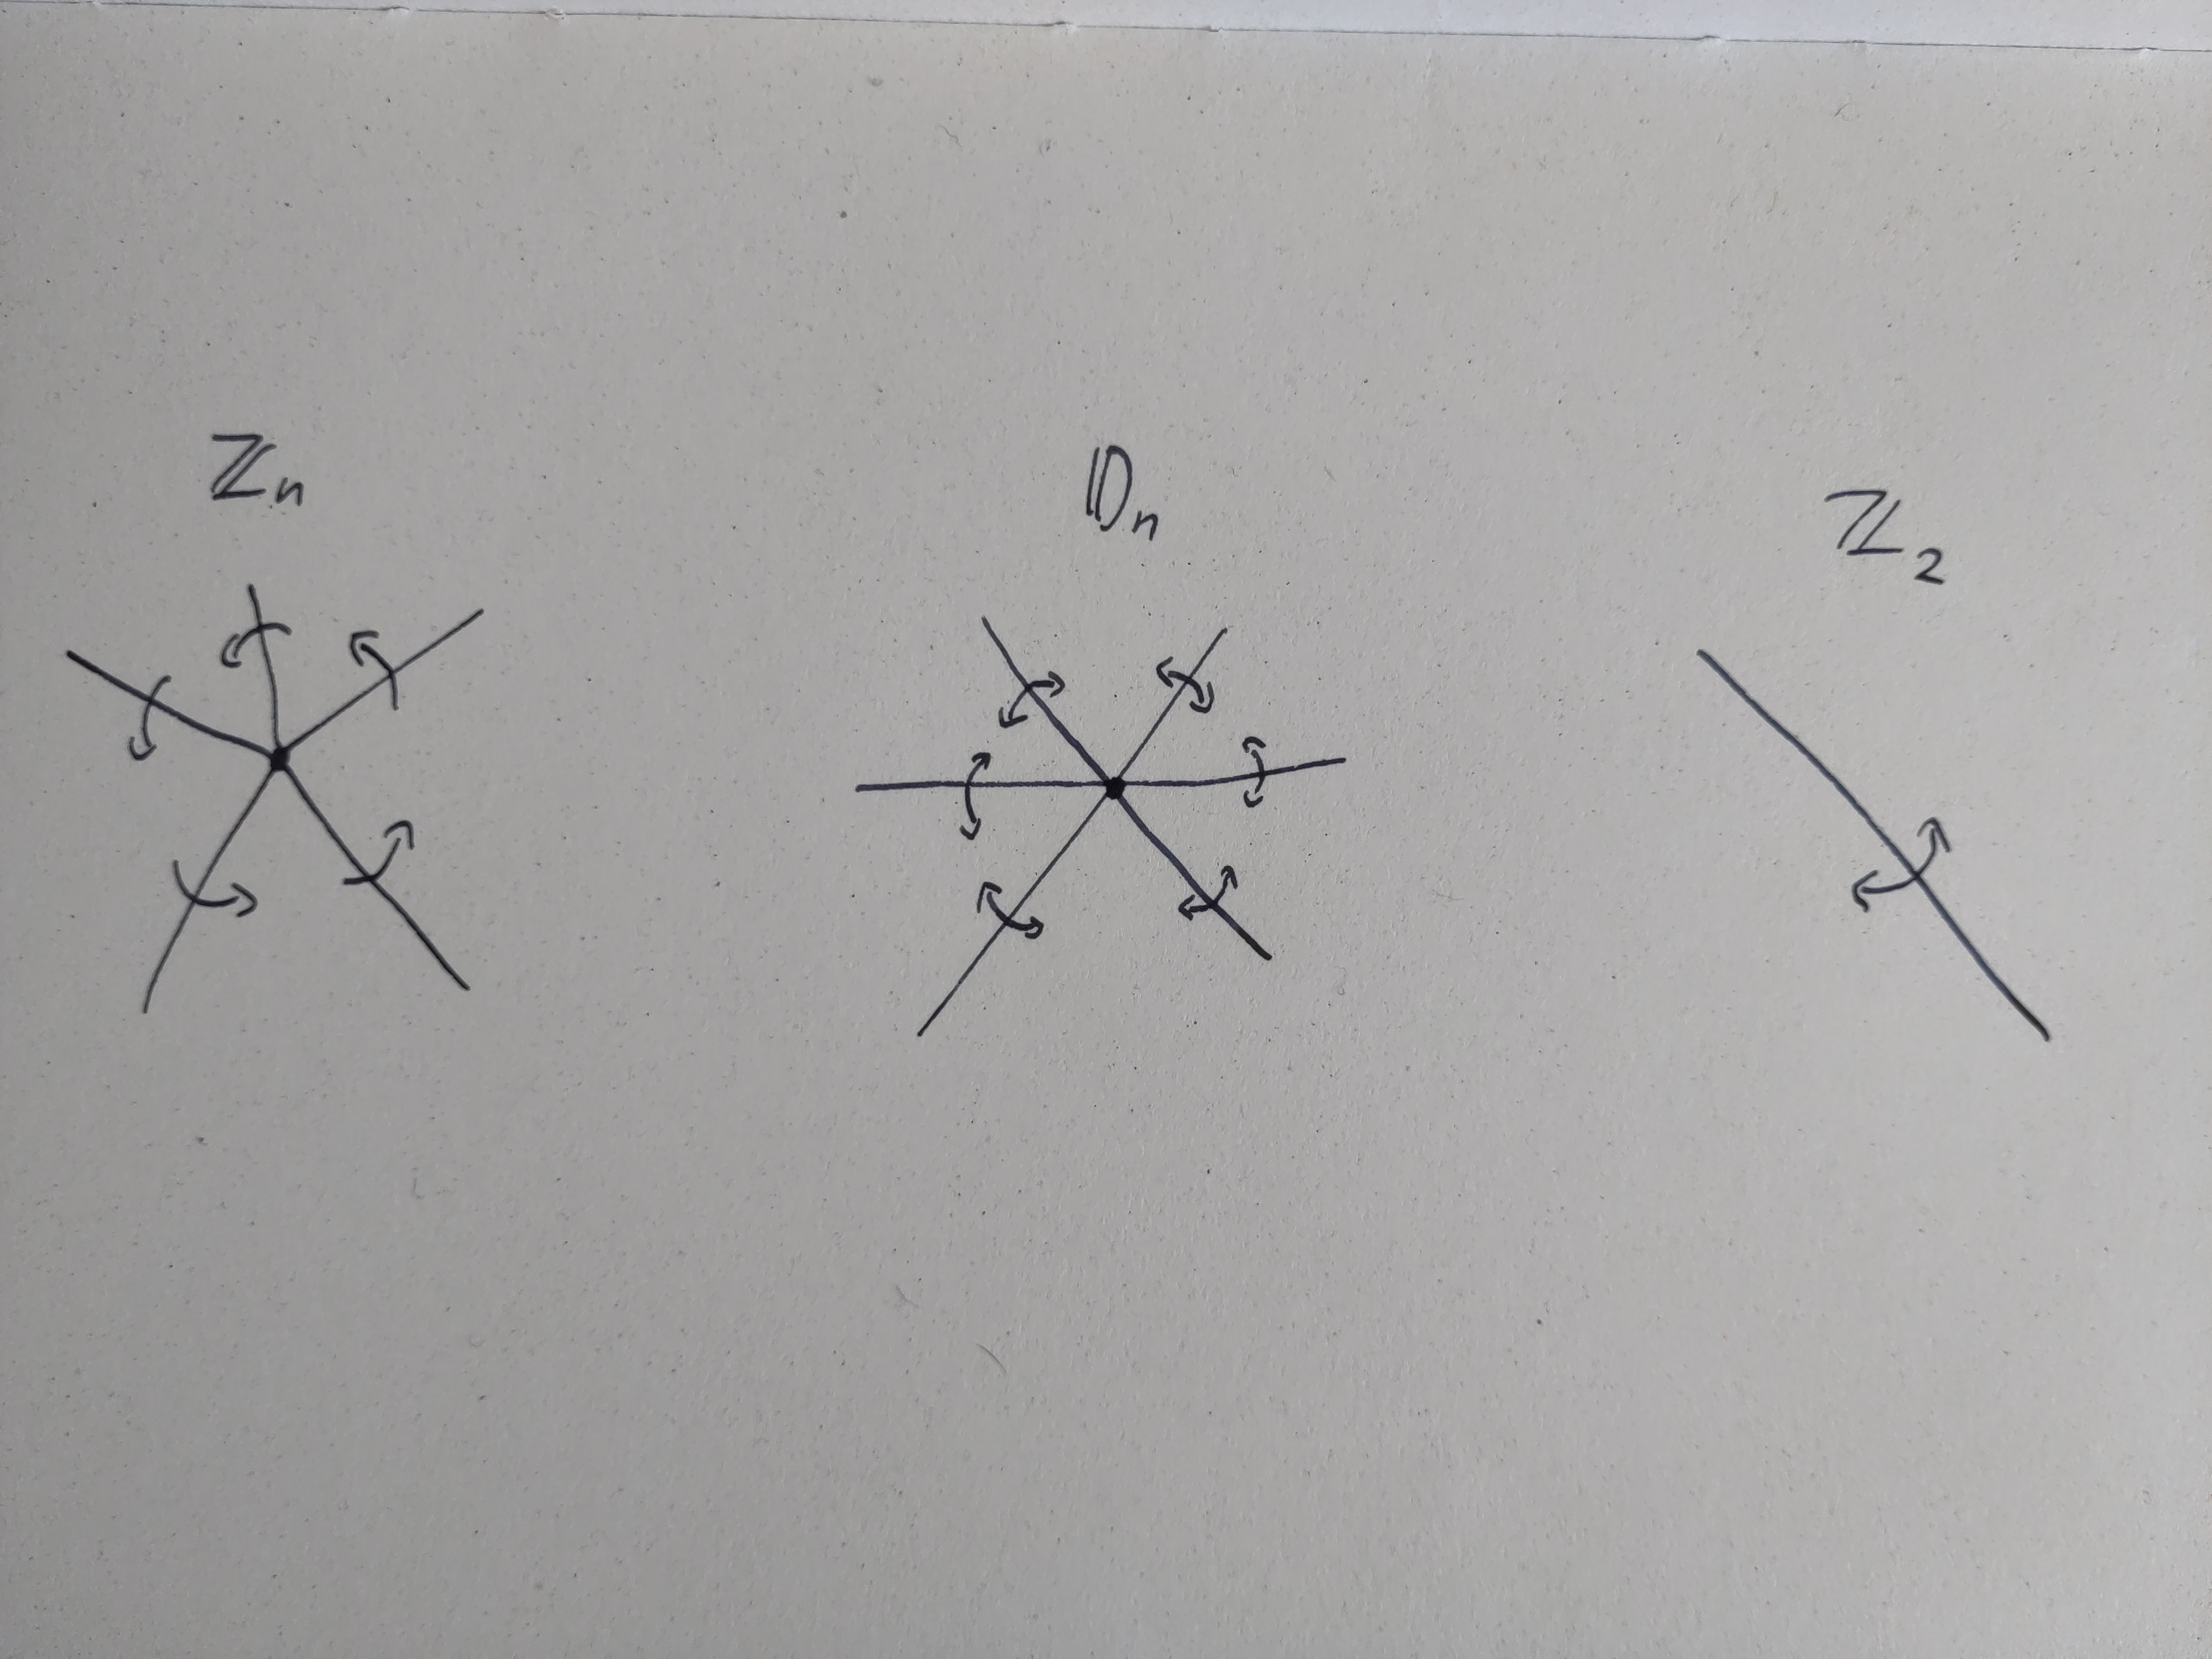 ℤn
𝔻n
ℤ2